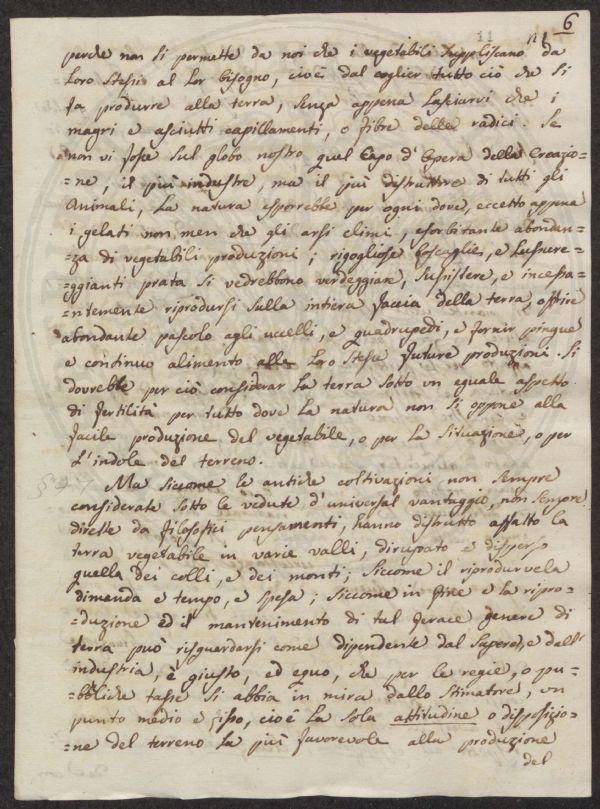 6
11
perche non si permette da noi che i vegetabili suppliscano da
Loro stessi al lor bisogno, cioè dal coglier tutto ciò che si
fa produrre alla terra, senza appena lasciarvi che i
magri e asciutti capillamenti, o fibre delle radici. Se
non vi fosse sul globo nostro quel Capo d'Opera della Creazio-
=ne, il più industre, ma il più distruttore di tutti gli
Animali, La natura esporrebbe per ogni dove, eccetto appena
i gelati non men che gli arsi climi, esorbitante abondan-
=za di vegetabili produzioni; rigogliose boscaglie, e Lussure-
=ggianti prata si vedrebbono verdeggiare, sussistere, e incessa-
=ntemente riprodursi sulla intiera faccia della terra, offrire
abondante pascolo agli uccelli, e quadrupedi, e fornir pingue
e continuo alimento alle Loro stesse future produzioni. Si
dovrebbe per ciò considerar La terra sotto un eguale aspetto
di fertilità per tutto dove La natura non si oppone alla
facile produzione del vegetabile, o per La situazione, o per
L'indole del terreno.
Ma siccome le antiche coltivazioni non sempre
considerate sotto le vedute d'universal vantaggio, non sempre
dirette da filosofici pensamenti, hanno distrutto affatto la
terra vegetabile in varie valli, dirupato e disperso
quella dei colli, e dei monti; siccome il riprodurvela
dimanda e tempo, e spesa; siccome in fine e la ripro-
=duzione ed il mantenimento di tal ferace genere di
terra può risguardarsi come dipendente dal sapere, e dall'
industria, è giusto, ed equo, che per le regie, o pu-
=bbliche tasse si abbia in mira dallo Stimatore, un
punto medio e fisso, cioè La sola attitudine o disposizio-
=ne del terreno La più favorevole alla produzione
del